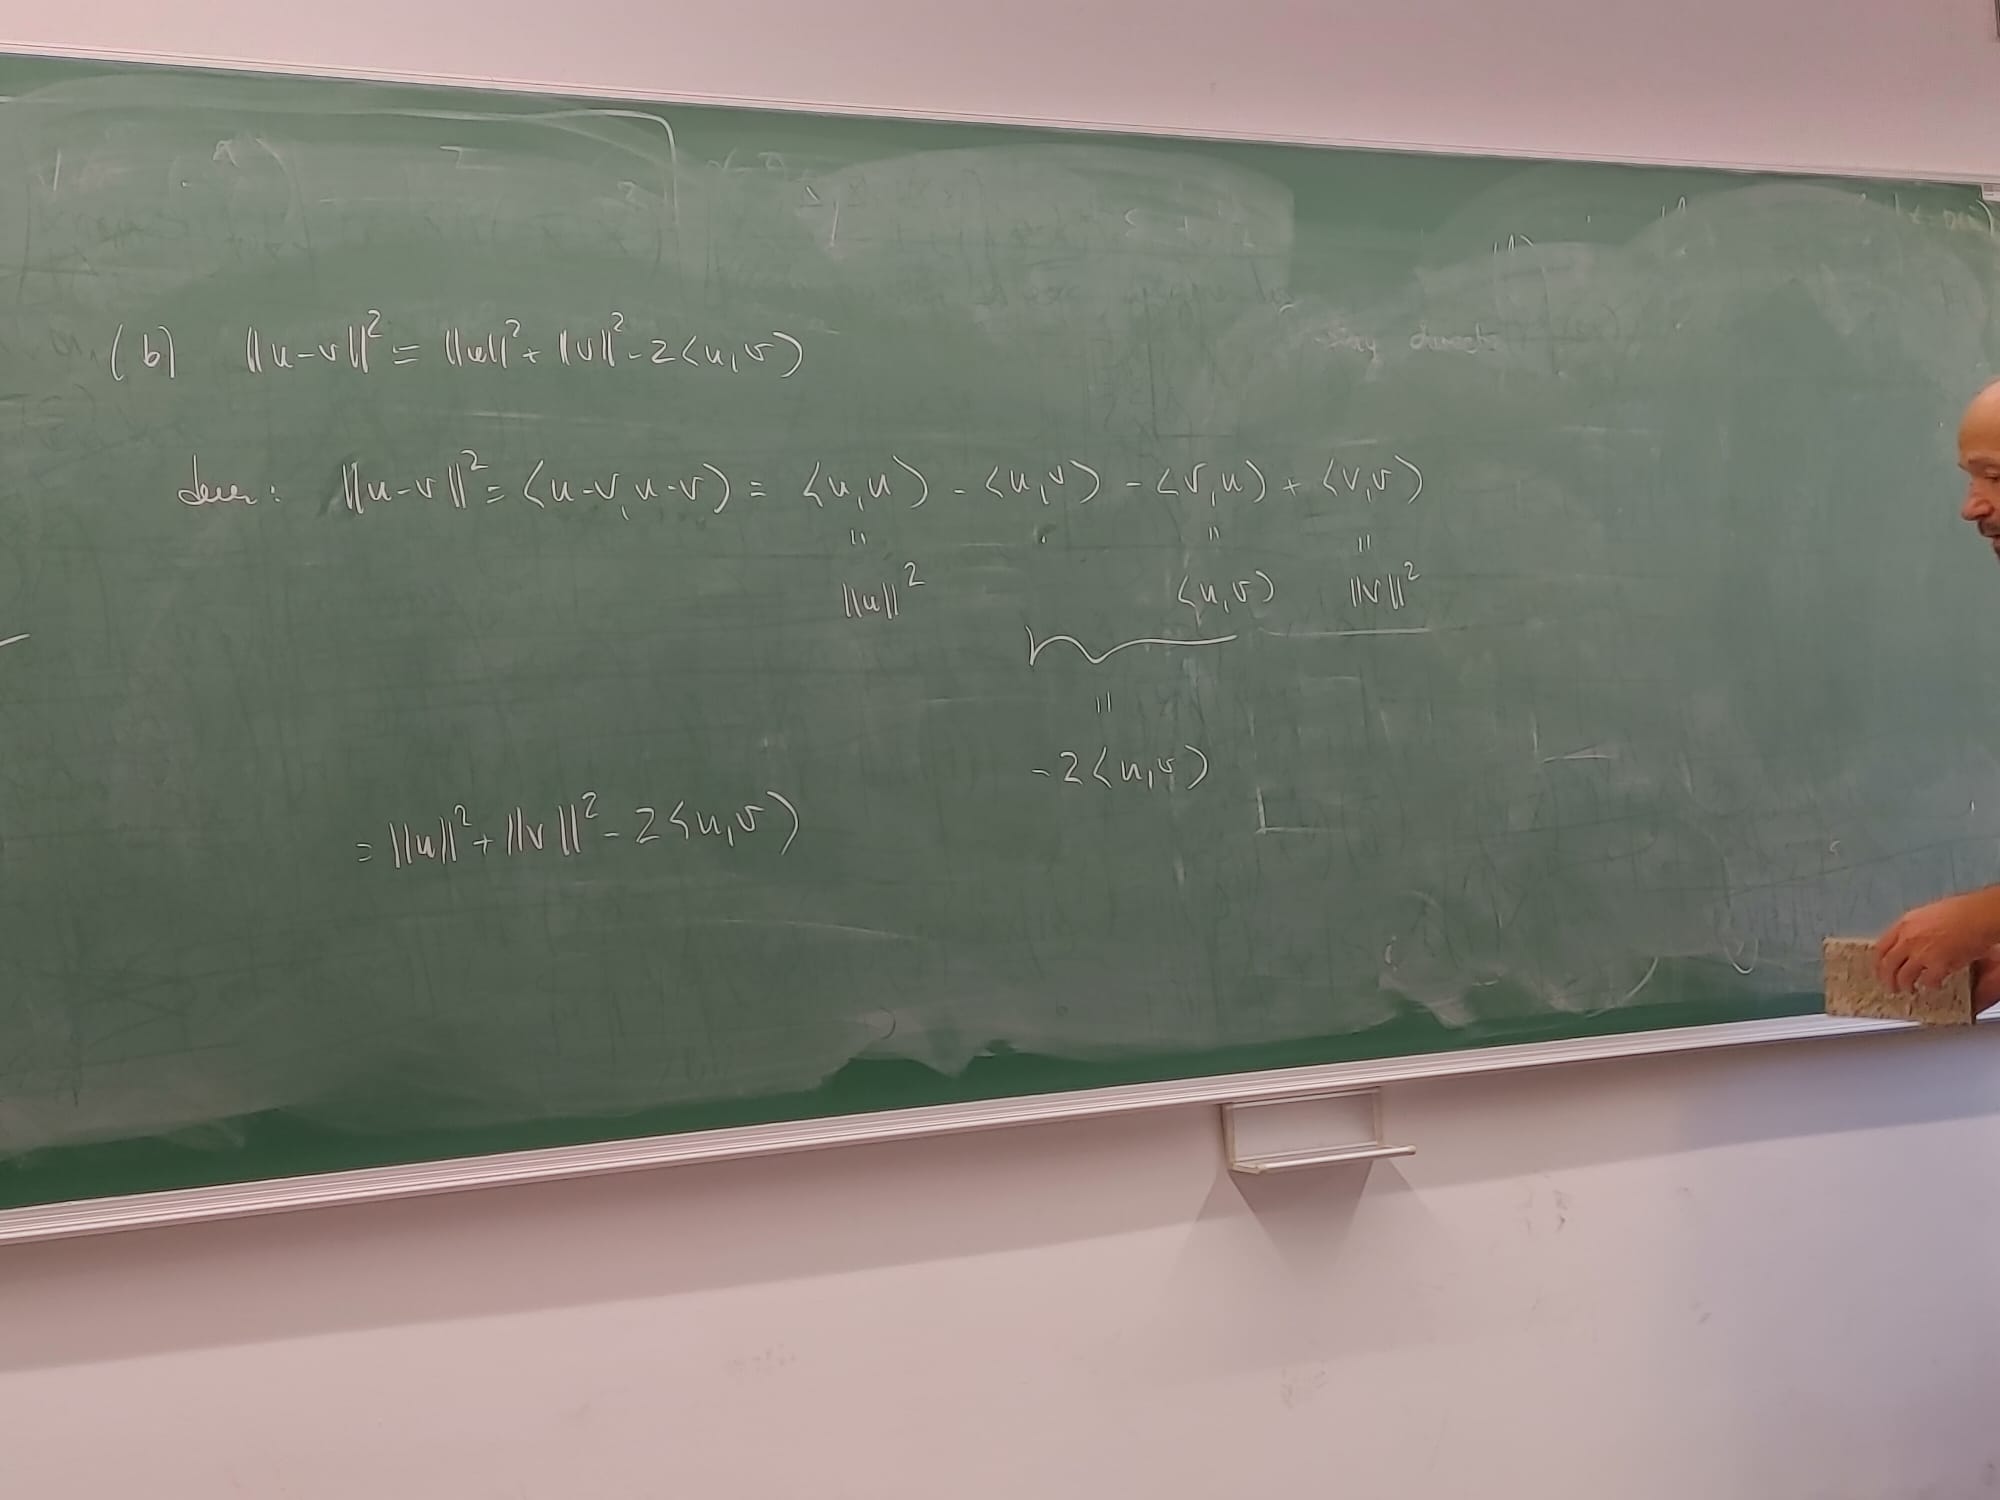 (b) ||u-v||² = ||u||² + ||v||² - 2<u,v>
dem: ||u-v||² = <u-v, u-v> = <u,u> - <u,v> - <v,u> + <v,v>
" " "
||u||² <u,v> ||v||²
"
-2<u,v>
= ||u||² + ||v||² - 2<u,v>